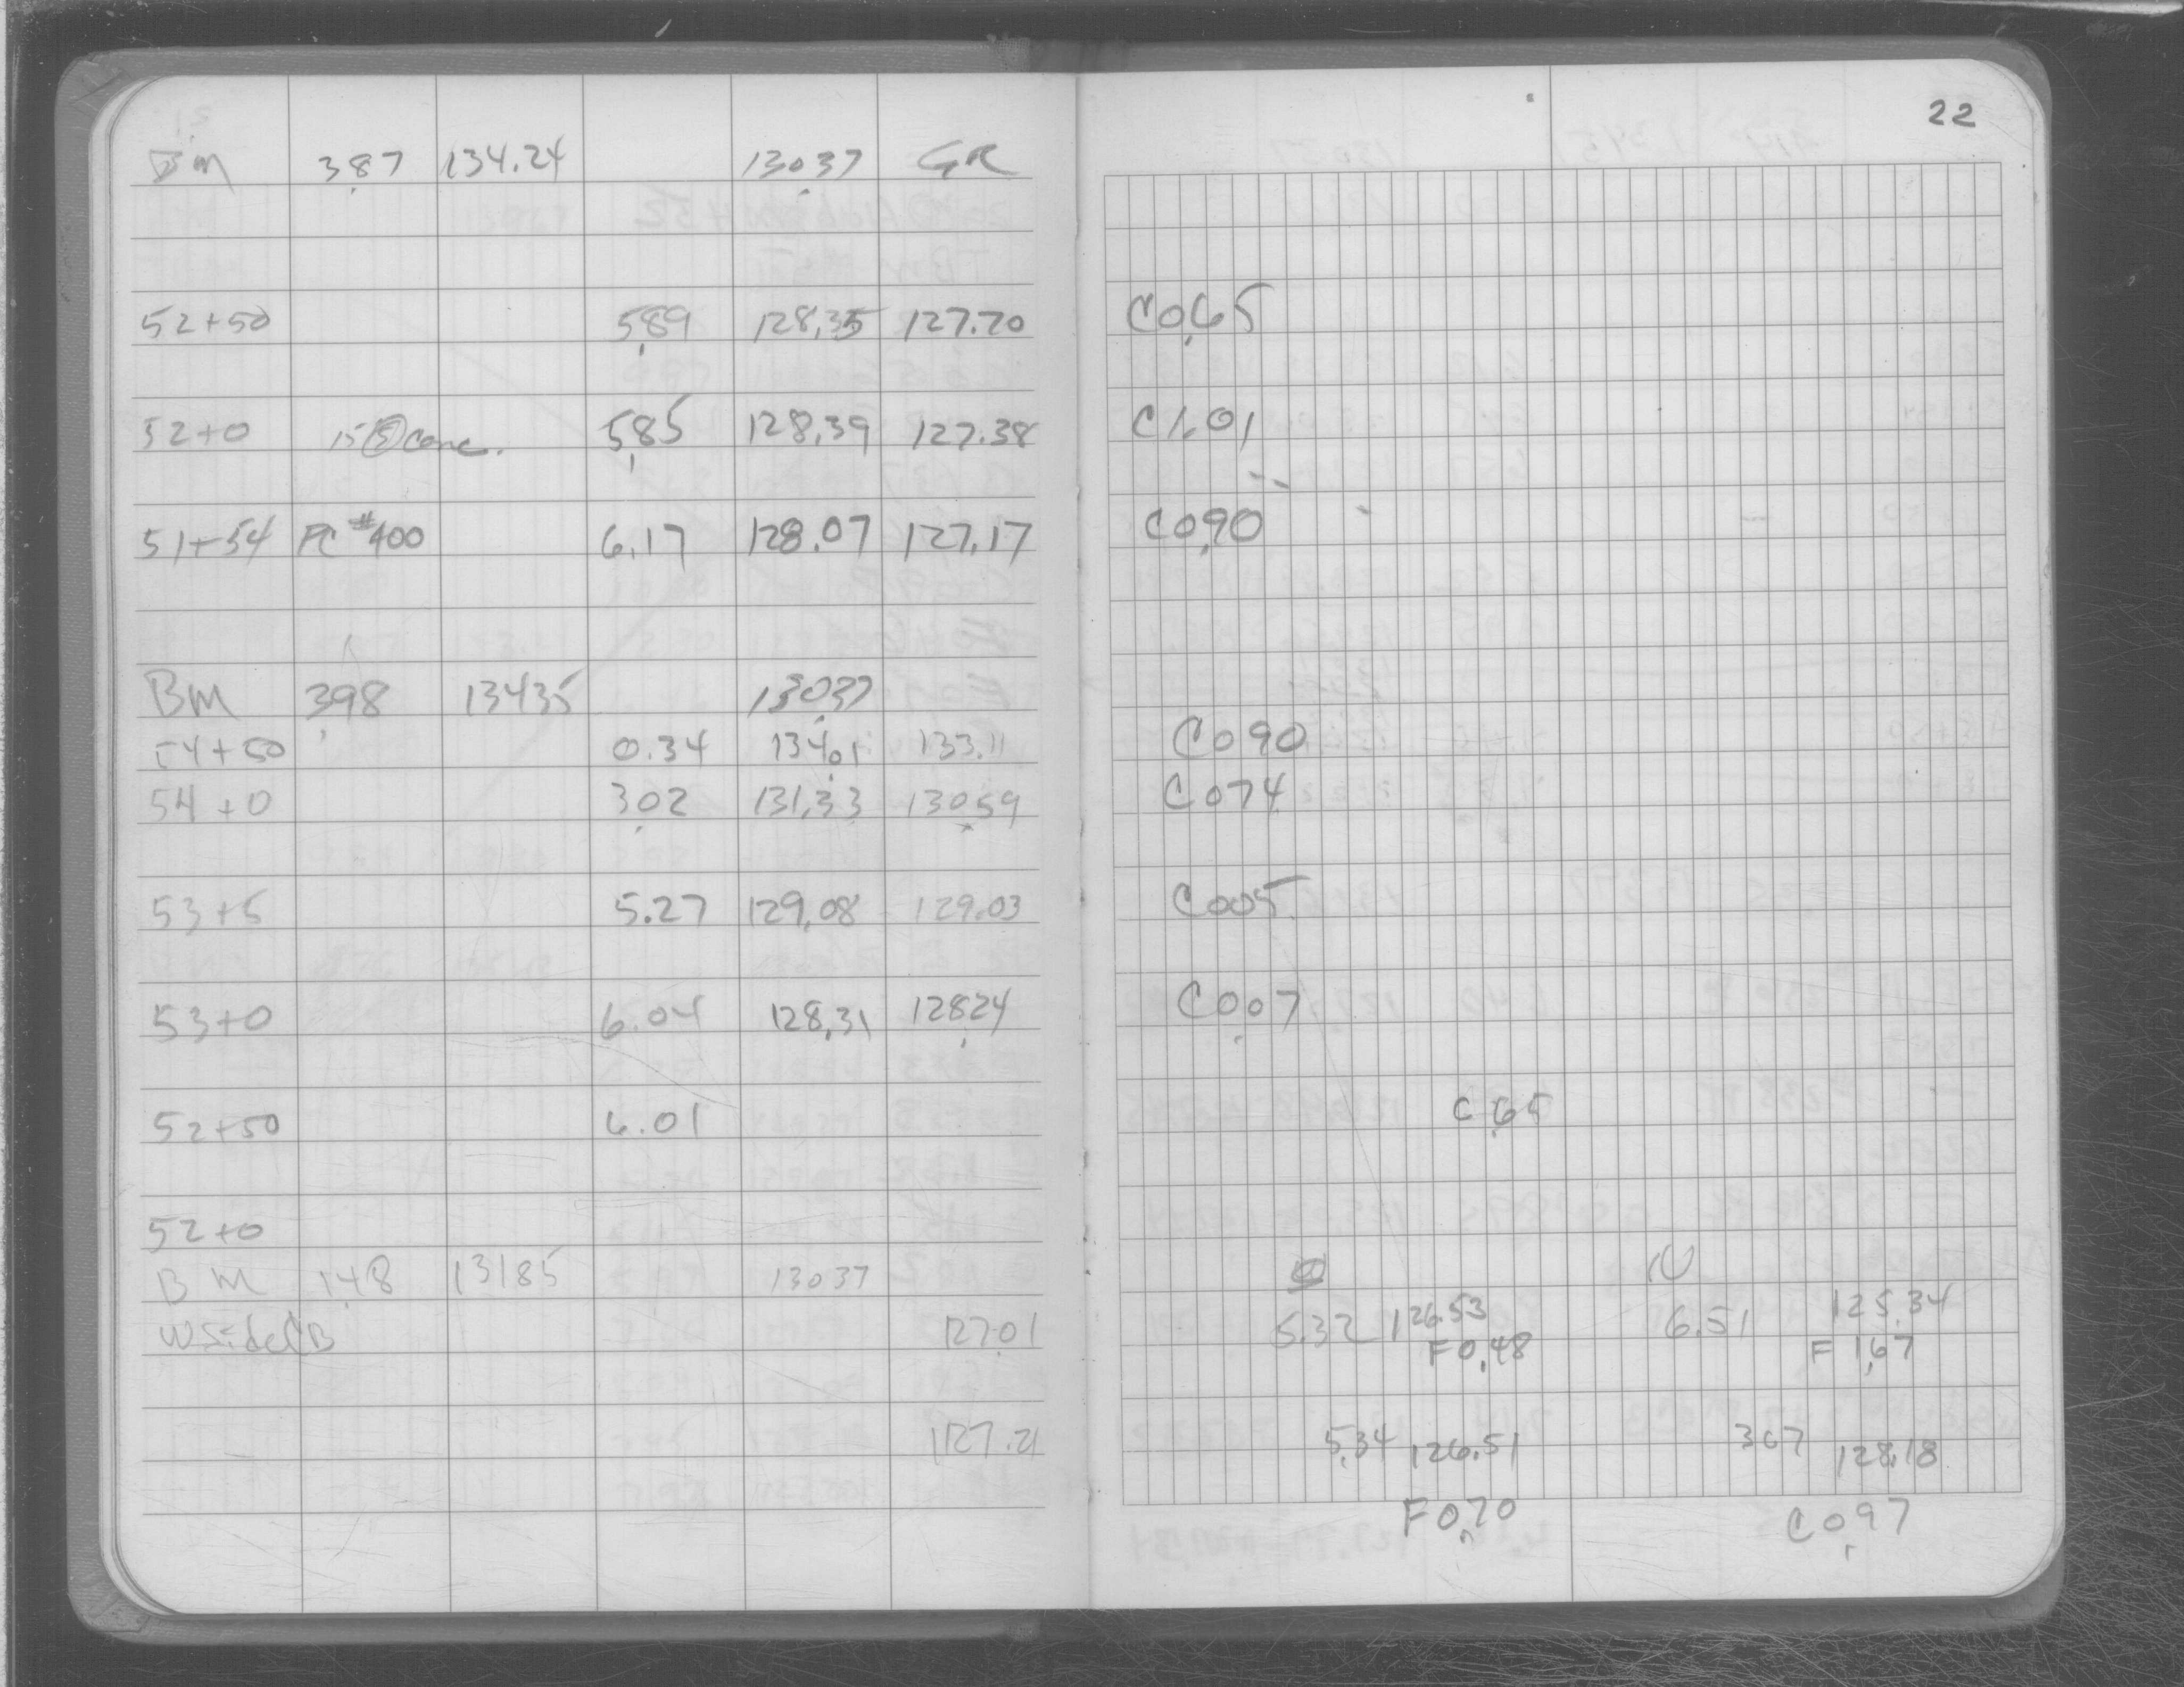 22
BM 3.87 134.24 130.37 GR
52+50 5.89 128.35 127.70 C 0.65
52+0 15" conc. 5.85 128.39 127.38 C 1.01
51+54 PC #400 6.17 128.07 127.17 C 0.90
BM 3.98 134 35 130.37
54+50 0.34 134.01 133.11 C 0 90
54+0 3.02 131.33 130.59 C 0 74
53+5 5.27 129.08 129.03 C 0 05
53+0 6.04 128.31 128.24 C 0.07
52+50 6.01 C .65
52+0
BM 1.48 131 85 130 37
W Side CB 127.01 5.32 126.53 6.51 125.34
F 0.48 F 1.67
127.21 5.34 126.51 3 67 128.18
F 0.70 C 0.97